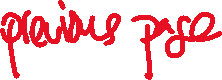 previous page